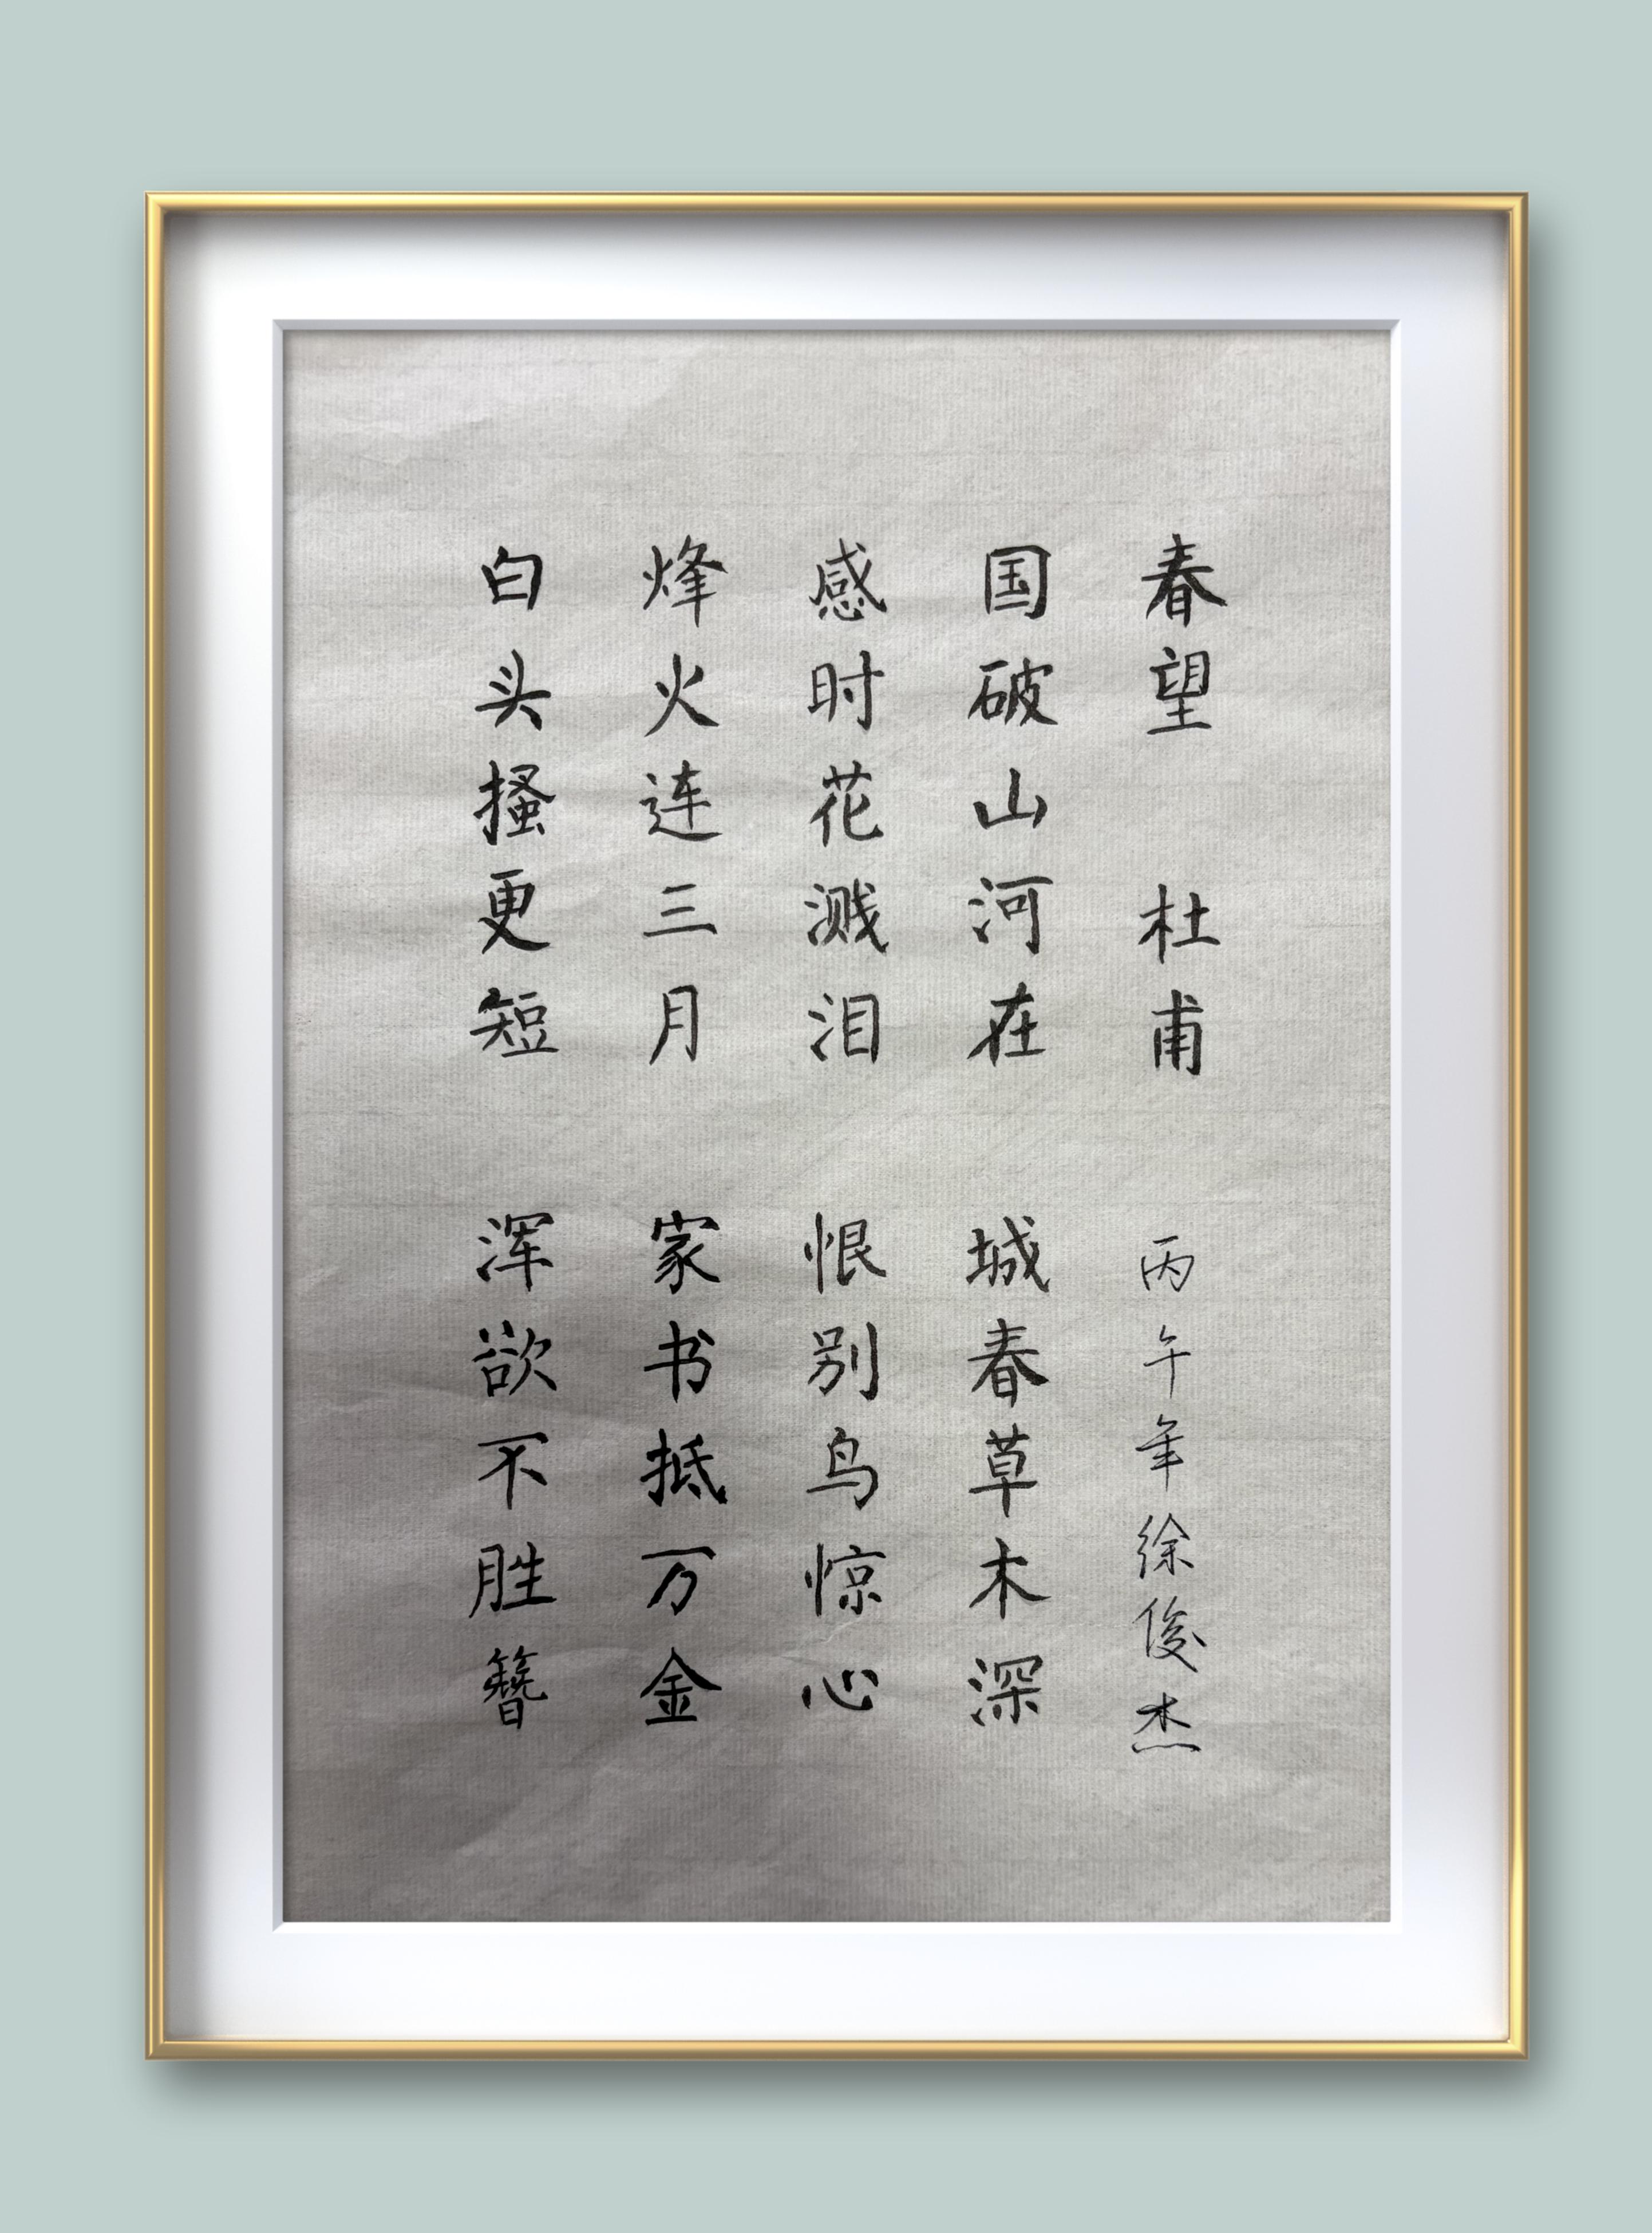 春望 杜甫 丙午年徐俊杰
国破山河在 城春草木深
感时花溅泪 恨别鸟惊心
烽火连三月 家书抵万金
白头搔更短 浑欲不胜簪